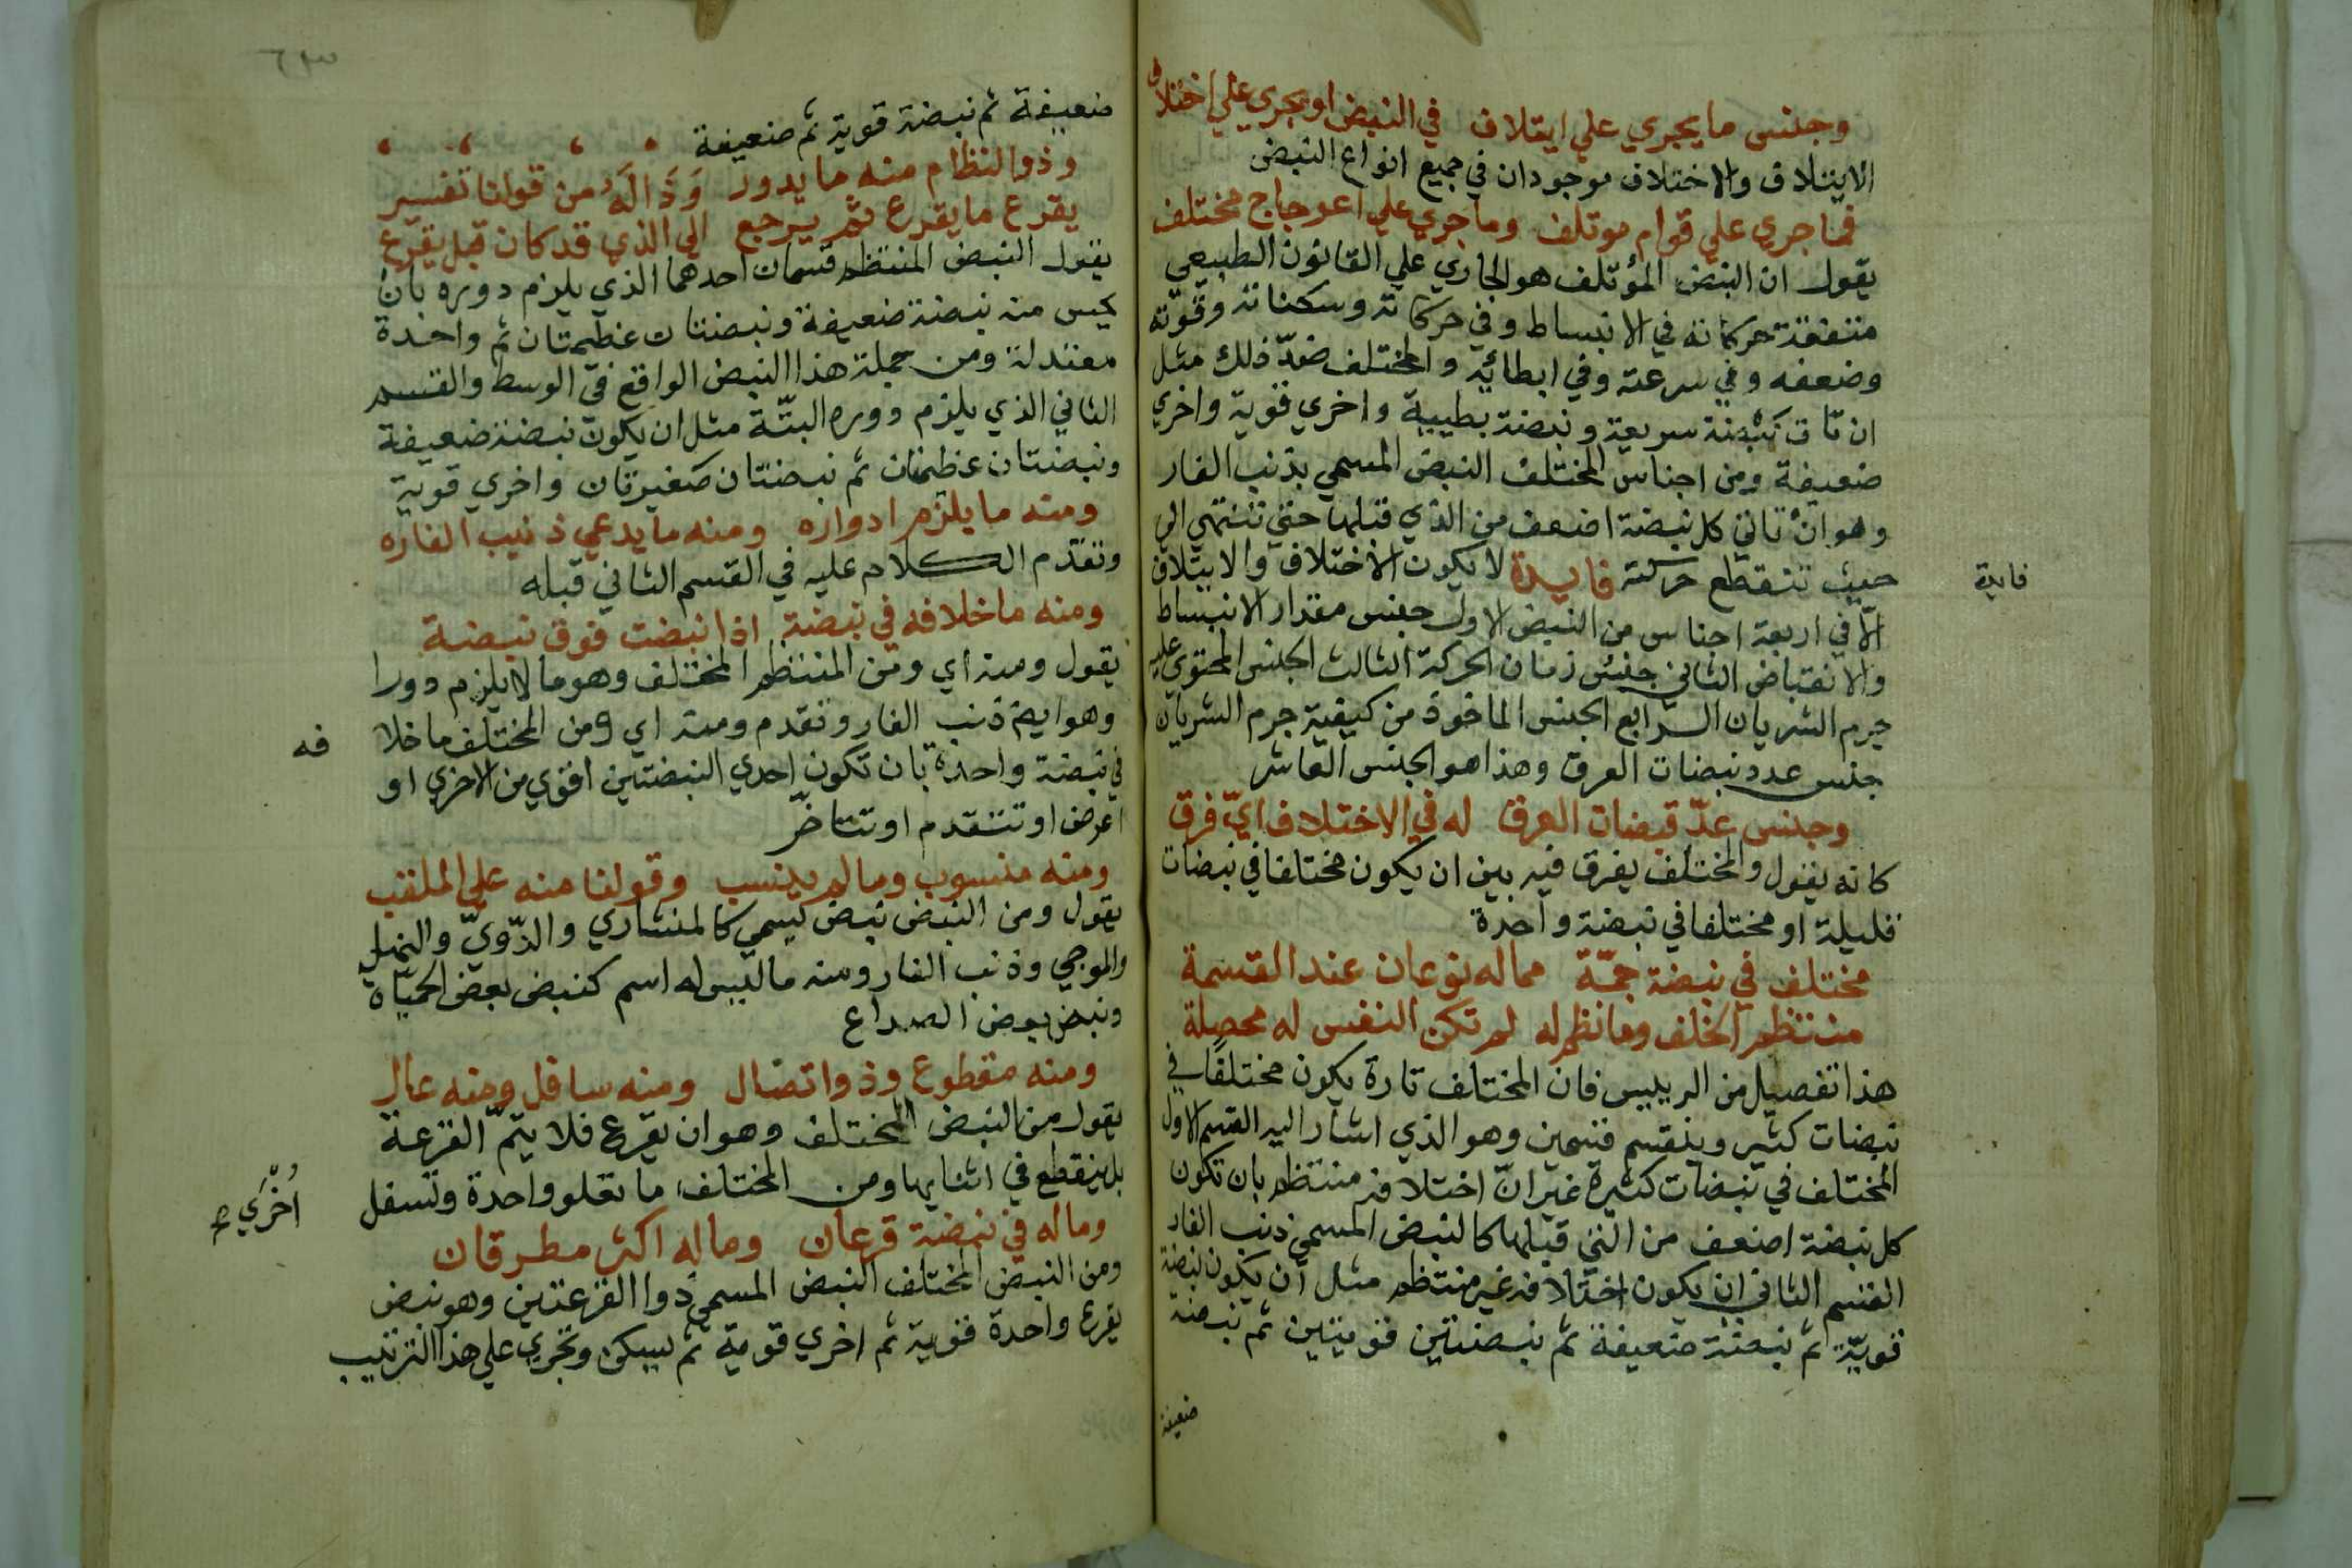 وجنس ما يجري علي ايتلاف في النبض او يجري علي اختلاف
الايتلاف والاختلاف موجودان في جميع انواع النبض
فما جري علي قوام موتلف وما جري علي اعوجاج مختلف
يقول ان النبض المؤتلف هو الجاري علي القانون الطبيعي
متفقة حركاته في الانبساط وفي حركاته وسكناته وقوته
وضعفه وفي سرعته وفي ابطائه والمختلف ضدّ ذلك مثل
ان تات نبضة سريعة ونبضة بطيية واخري قوية واخري
ضعيفة ومن اجناس المختلف النبض المسمي بذنب الفار
وهو ان تاتي كل نبضة اضعف من الذي قبلها حتي تنتهي الي
حيث تنقطع حركته فايدة لا يكون الاختلاف والايتلاف
فايدة
الّا في اربعة اجناس من النبض الاول جنس مقدار الانبساط
والانقباض الثاني جنس زمان الحركة الثالث الجنس المحتوي عليه
جرم الشريان الرابع الجنس الماخوذ من كيفية جرم الشريان
جنس عدد نبضات العرق وهذا هو الجنس العاشر
وجنس عدّ قبضات العرق له في الاختلاف ايّ فرق
كانه يقول والمختلف يفرق فيه بين ان يكون مختلفا في نبضات
قليلة او مختلفا في نبضة واحدة
مختلف في نبضة جمّة مما له نوعان عند القسمة
منتظم الخلف وما نظم له لم تكن النفس له محصلة
هذا تفصيل من الرييس فان المختلف تارة يكون مختلفا في
نبضات كثير وينقسم قسمين وهو الذي اشار اليه القسم الاول
المختلف في نبضات كثيرة غير انّ اختلافه منتظم بان تكون
كل نبضة اضعف من التي قبلها كالنبض المسمي ذنب الفار
القسم الثاني ان يكون اختلافه غير منتظم مثل ان يكون نبضة
قويّة ثم نبضة ضعيفة ثم نبضتين قويتين ثم نبضة
ضعيفة
ضعيفة ثم نبضة قوية ثم ضعيفة
وذو النظام منه ما يدور وَذَا لَهُ من قولنا تفسير
يقرع ما يقرع ثم يرجع الي الذي قد كان قبل يقرع
يقول النبض المنتظم قسمان احدهما الذي يلزم دوره بان
يحس منه نبضة ضعيفة ونبضتان عظيمتان ثم واحدة
معتدلة ومن جملة هذا النبض الواقع في الوسط والقسم
الثاني الذي يلزم دوره البتّة مثل ان يكون نبضة ضعيفة
ونبضتان عظيمتان ثم نبضتان صغيرتان واخري قوية
ومنه ما يلزم ادواره ومنه ما يدعي ذنيب الفاره
وتقدّم الكلام عليه في القسم الثاني قبله
ومنه ما خلافه في نبضة اذا نبضت فوق نبضة
يقول ومنه اي ومن المنتظم المختلف وهو ما لا يلزم دورا
وهو ايضا ذنب الفار وتقدم ومنه اي ومن المختلف ما خلا
فه
في نبضة واحدة بان تكون احدي النبضتين اقوي من الاخري او
اعرض او تتقدم او تتاخّر
ومنه منسوب وما لم ينسب وقولنا منه علي الملقب
يقول ومن النبض نبض يسمي كالمنشاري والدّوديّ والنملي
والموجي وذنب الفار ومنه ما ليس له اسم كنبض بعض الحمياة
ونبض بعض الصداع
ومنه مقطوع وذو اتصال ومنه سافل ومنه عال
يقول من النبض المختلف وهو ان يقرع فلا يتمّ القرعة
بل ينقطع في اثنايها ومن المختلف ما تعلو واحدة وتسفل
اُخْرَي
وما له في نبضة قرعان وما له اكثر مطرقان
ومن النبض المختلف النبض المسمي ذوا القرعتين وهو نبض
يقرع واحدة قوية ثم اخري قومية ثم يسكن وتجري علي هذا الترتيب